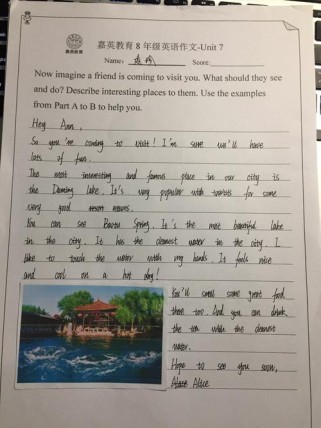 嘉英教育 8 年级英语作文-Unit 7
Name: Score:
Now imagine a friend is coming to visit you. What should they see
and do? Describe interesting places to them. Use the examples
from Part A to B to help you.
Hey Ann,
So you're coming to visit! I'm sure we'll have
lots of fun.
The most interesting and famous place in our city is
the Daming lake. It's very popular with tourists for some
very good reasons.
You can see Baotu Spring. It's the most beautiful lake
in the city. It has the cleanest water in the city. I
like to touch the water with my hands. It feels nice
and cool on a hot day!
You'll some great food
there too. And you can drink
the tea with the cleanest
water.
Hope to see you soon,
Alice